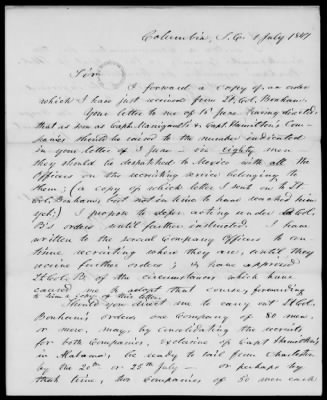 Columbia, S.C. 1 July 1847
Sir
I forward a copy of an order
which I have just received from Lt. Col. Bonham.
Your letter to me of 15 June having directed
that as soon as Capts. Manigault's & Capt. Hamilton's Com-
panies should be raised to the number indicated
in your letter of 3 June - viz eighty men
they should be despatched to Mexico with all the
Officers on the recruiting service belonging to
them; (a copy of which letter I sent on to Lt.
Col. Bonham, but not in time to have reached him
yet;) I propose to defer acting under Lt. Col.
B's orders until further instructed. I have
written to the several Company Officers to con-
tinue recruiting where they are, until they
receive further orders; & have apprised
Lt. Col. B. of the circumstances which have
caused me to adopt that course, forwarding
to him a copy of this letter.
Should you direct me to carry out Lt. Col.
Bonham's orders one Company of 80 men,
or more, may, by consolidating the recruits
for both Companies, exclusive of Capt Hamilton's
in Alabama, be ready to sail from Charleston
by the 20th or 25th July - or perhaps by
that time, two Companies of 50 men each